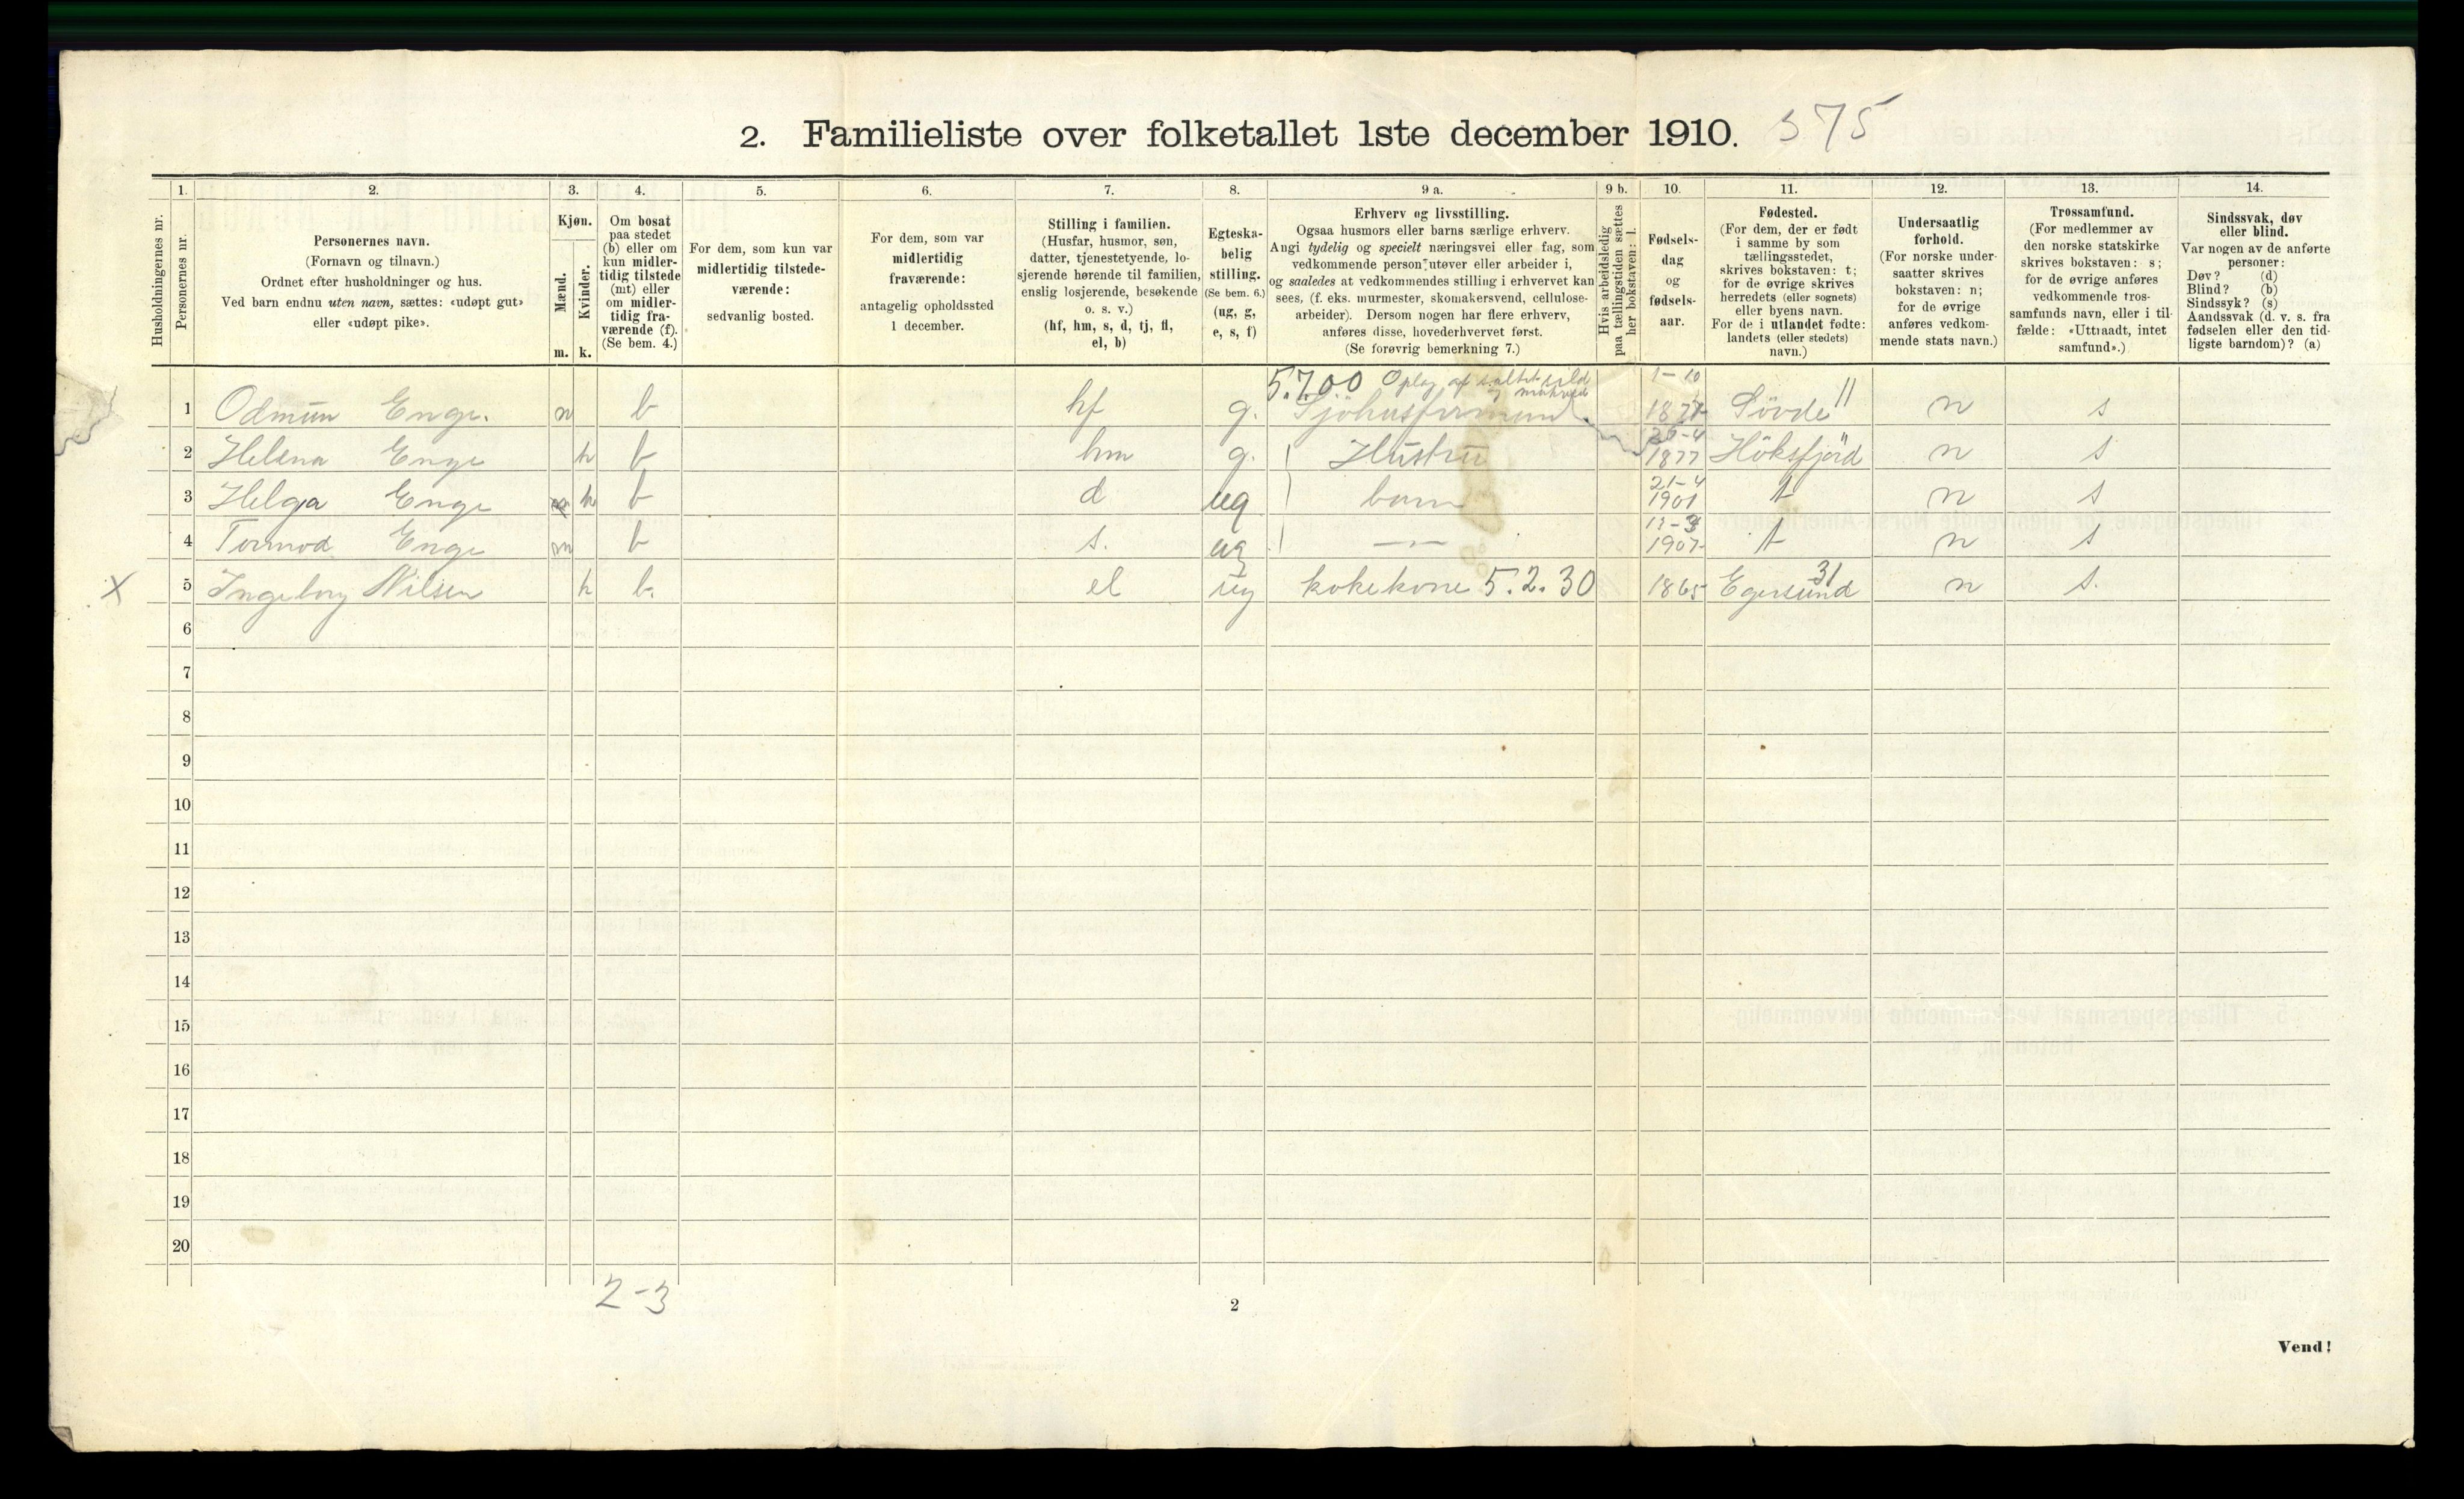 2. Familieliste over folketallet 1ste december 1910. 375
Husholdningernes nr.
1.
Personernes nr.
2.
Personernes navn.
(Fornavn og tilnavn.)
Ordnet efter husholdninger og hus.
Ved barn endnu uten navn, sættes: «udøpt gut»
eller «udøpt pike».
3.
Kjøn.
Mænd.
Kvinder.
m. k.
4.
Om bosat
paa stedet
(b) eller om
kun midler-
tidig tilstede
(mt) eller
om midler-
tidig fra-
værende (f).
(Se bem. 4.)
5.
For dem, som kun var
midlertidig tilstede-
værende:
sedvanlig bosted.
6.
For dem, som var
midlertidig
fraværende:
antagelig opholdssted
1 december.
7.
Stilling i familien.
(Husfar, husmor, søn,
datter, tjenestetyende, lo-
sjerende hørende til familien,
enslig losjerende, besøkende
o. s. v.)
(hf, hm, s, d, tj, fl,
el, b)
8.
Egteska-
belig
stilling.
(Se bem. 6.)
(ug, g,
e, s, f)
9 a.
Erhverv og livsstilling.
Ogsaa husmors eller barns særlige erhverv.
Angi tydelig og specielt næringsvei eller fag, som
vedkommende person utøver eller arbeider i,
og saaledes at vedkommendes stilling i erhvervet kan
sees, (f. eks. murmester, skomakersvend, cellulose-
arbeider). Dersom nogen har flere erhverv,
anføres disse, hovederhvervet først.
(Se forøvrig bemerkning 7.)
9 b.
Hvis arbeidsledig
paa tællingstiden sættes
her bokstaven: l.
10.
Fødsels-
dag
og
fødsels-
aar.
11.
Fødested.
(For dem, der er født
i samme by som
tællingsstedet,
skrives bokstaven: t;
for de øvrige skrives
herredets (eller sognets)
eller byens navn.
For de i utlandet fødte:
landets (eller stedets)
navn.)
12.
Undersaatlig
forhold.
(For norske under-
saatter skrives
bokstaven: n;
for de øvrige
anføres vedkom-
mende stats navn.)
13.
Trossamfund.
(For medlemmer av
den norske statskirke
skrives bokstaven: s;
for de øvrige anføres
vedkommende tros-
samfunds navn, eller i til-
fælde: «Uttraadt, intet
samfund».)
14.
Sindssvak, døv
eller blind.
Var nogen av de anførte
personer:
Døv? (d)
Blind? (b)
Sindssyk? (s)
Aandssvak (d. v. s. fra
fødselen eller den tid-
ligste barndom)? (a)
5.7.00 Oplag af saltet sild 1-10
1 Odmun Enge. m b hf g. Sjöhusformand 1877 Sövde 11 n s
26-4
2 Helena Enge k b hm g. Hustru 1877 Höksfjörd n s
21-4
3 Helga Enge k b d ug barn 1901 t n s
4 Tormod Enge m b s. ug — 1907 t n s
X 5 Ingeborg Nilsen k b. el ug kokekone 5.2.30 1865 Egersund 31 n s.
6
7
8
9
10
11
12
13
14
15
16
17
18
19
20
2-3
2
Vend!